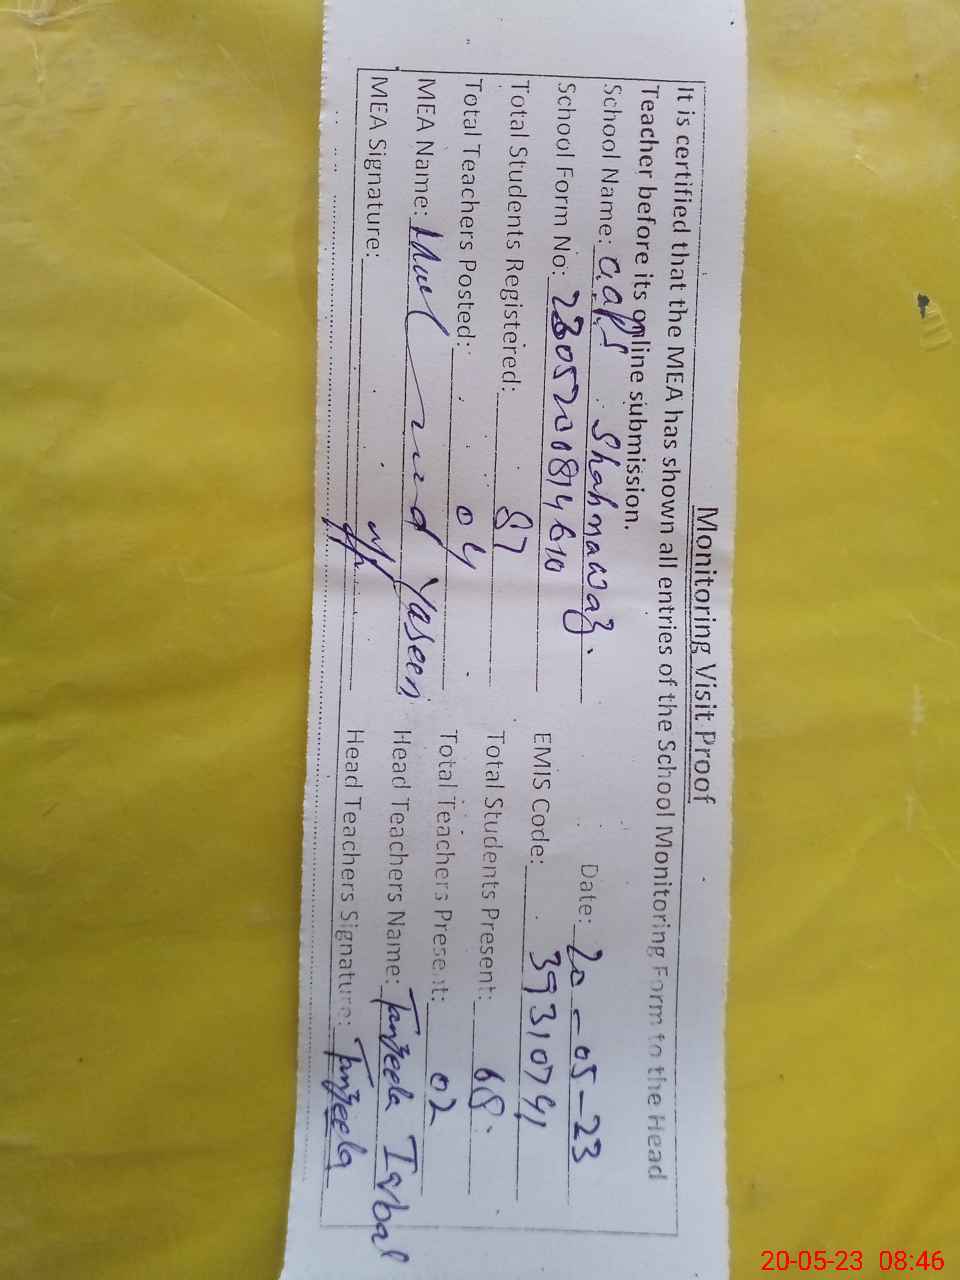 Monitoring Visit Proof
It is certified that the MEA has shown all entries of the School Monitoring Form to the Head
Teacher before its online submission.
School Name: GGPS Shahnawaz. Date: 20-05-23
School Form No: EMIS Code: 39310741
Total Students Registered: 87 Total Students Present: 68.
Total Teachers Posted: 04 Total Teachers Present: 02
MEA Name: Yaseen Head Teachers Name: Tanzeela Iqbal
MEA Signature: Head Teachers Signature: Tanzeela
20-05-23 08:46